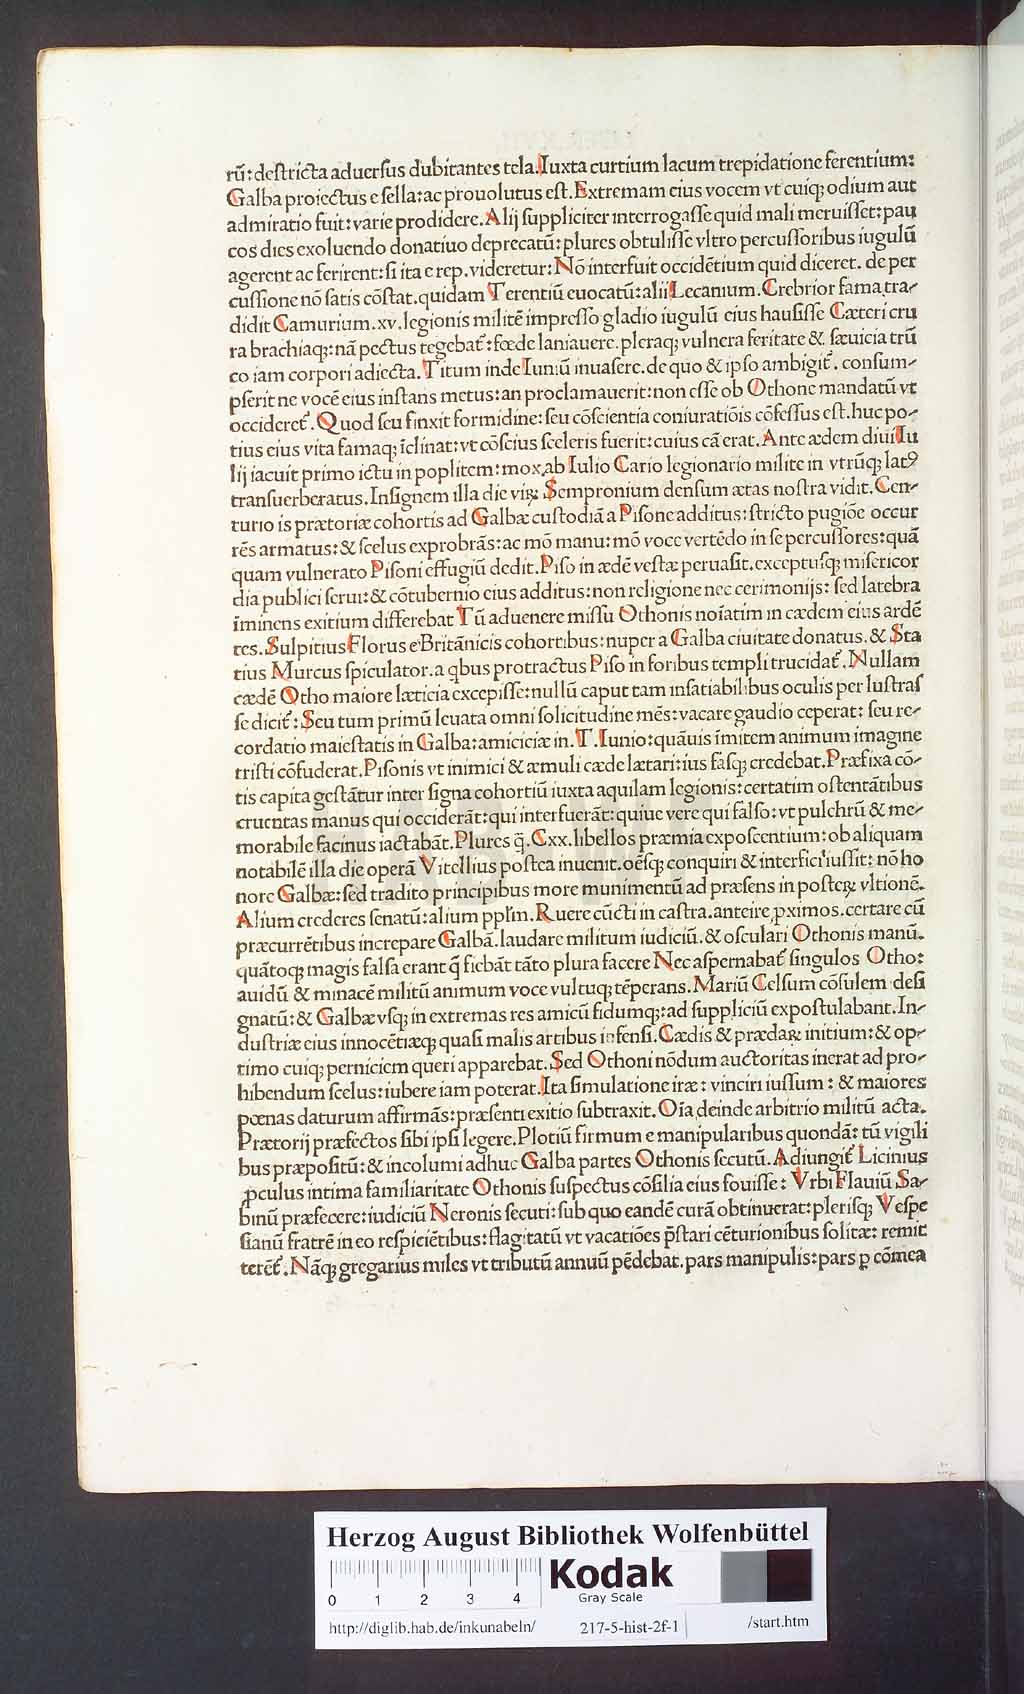 rū: deſtricta aduerſus dubitantes tela. Iuxta curtium lacum trepidatione ferentium:
Galba proiectus e ſella: ac prouolutus eſt. Extremam eius vocem vt cuiqꝫ odium aut
admiratio fuit: varie prodidere. Alij ſuppliciter interrogaſſe quid mali meruiſſet: pau
cos dies exoluendo donatiuo deprecatū: plures obtuliſſe vltro percuſſoribus iugulū
agerent ac ferirent: ſi ita e rep. videretur: Nō interfuit occidētium quid diceret. de per
cuſſione nō ſatis cōſtat. quidam Terentiū euocatū: alii Lecanium. Crebrior fama tra-
didit Camurium. xv. legionis militē impreſſo gladio iugulū eius hauſiſſe Cæteri cru
ra brachiaqꝫ: nā pectus tegebat᷑: fœde laniauere. pleraqꝫ vulnera feritate & ſæuicia trū
co iam corpori adiecta. Titum inde Iuniū inuaſere. de quo & ipſo ambigit᷑. conſum-
pſerit ne vocē eius inſtans metus: an proclamauerit: non eſſe ob Othone mandatū vt
occideret᷑. Quod ſeu finxit formidine: ſeu cōſcientia coniuratiōis cōfeſſus eſt. huc po-
tius eius vita famaqꝫ īclinat: vt cōſcius ſceleris fuerit: cuius cā erat. Ante ædem diui Iu
lij iacuit primo ictu in poplitem: mox ab Iulio Cario legionario milite in vtrūqꝫ latꝰ
tranſuerberatus. Inſignem illa die viꝝ Sempronium denſum ætas noſtra vidit. Cen-
turio is prætoriæ cohortis ad Galbæ cuſtodiā a Piſone additus: ſtricto pugiōe occur
rēs armatus: & ſcelus exprobrās: ac mō manu: mō voce vertēdo in ſe percuſſores: quā
quam vulnerato Piſoni effugiū dedit. Piſo in ædē veſtæ peruaſit. exceptuſqꝫ miſericor
dia publici ſerui: & cōtubernio eius additus: non religione nec cerimonijs: ſed latebra
īminens exitium differebat Tū aduenere miſſu Othonis noīatim in cædem eius ardē
tes. Sulpitius Florus e Britānicis cohortibus: nuper a Galba ciuitate donatus. & Sta
tius Murcus ſpiculator. a qbus protractus Piſo in foribus templi trucidat᷑. Nullam
cædē Otho maiore læticia excepiſſe: nullū caput tam inſatiabilibus oculis per luſtraſ
ſe dicit᷑: Seu tum primū leuata omni ſolicitudine mēs: vacare gaudio ceperat: ſeu re-
cordatio maieſtatis in Galba: amiciciæ in. T. Iunio: quāuis īmitem animum imagine
triſti cōfuderat. Piſonis vt inimici & æmuli cæde lætari: ius faſqꝫ credebat. Præfixa cō-
tis capita geſtātur inter ſigna cohortiū iuxta aquilam legionis: certatim oſtentātibus
cruentas manus qui occiderāt: qui interfuerāt: quiue vere qui falſo: vt pulchrū & me-
morabile facinus iactabāt. Plures q̄. Cxx. libellos præmia expoſcentium: ob aliquam
notabilē illa die operā Vitellius poſtea inuenit. oēſqꝫ conquiri & interfici iuſſit: nō ho
nore Galbæ: ſed tradito principibus more munimentū ad præſens in poſteꝝ vltionē.
Alium crederes ſenatū: alium pplm̄. Ruere cūcti in caſtra. anteire ꝓximos. certare cū
præcurrētibus increpare Galbā. laudare militum iudiciū. & oſculari Othonis manū.
quātoqꝫ magis falſa erant q̄ fiebāt tāto plura facere Nec aſpernabat᷑ ſingulos Otho:
auidū & minacē militū animum voce vultuqꝫ tēperans. Mariū Celſum cōſulem deſi
gnatū: & Galbæ vſqꝫ in extremas res amicū fidumqꝫ: ad ſuppliciū expoſtulabant. In-
duſtriæ eius innocētiæqꝫ quaſi malis artibus infenſi. Cædis & prædaꝝ initium: & op-
timo cuiqꝫ perniciem queri apparebat. Sed Othoni nōdum auctoritas inerat ad pro-
hibendum ſcelus: iubere iam poterat. Ita ſimulatione iræ: vinciri iuſſum: & maiores
pœnas daturum affirmās: præſenti exitio ſubtraxit. Oīa deinde arbitrio militū acta.
Prætorij præfectos ſibi ipſi legere. Plotiū firmum e manipularibus quondā: tū vigili
bus præpoſitū: & incolumi adhuc Galba partes Othonis ſecutū. Adiungit᷑ Licinius
ꝓculus intima familiaritate Othonis ſuſpectus cōſilia eius fouiſſe: Vrbi Flauiū Sa-
binū præfecere: iudiciū Neronis ſecuti: ſub quo eandē curā obtinuerat: pleriſqꝫ Veſpe
ſianū fratrē in eo reſpiciētibus: flagitatū vt vacatiōes p̄ſtari cēturionibus ſolitæ: remit
terēt᷑. Nāqꝫ gregarius miles vt tributū annuū pēdebat. pars manipulis: pars ꝑ cōmea
Herzog August Bibliothek Wolfenbüttel
0 1 2 3 4
Kodak
Gray Scale
http://diglib.hab.de/inkunabeln/ 217-5-hist-2f-1 /start.htm